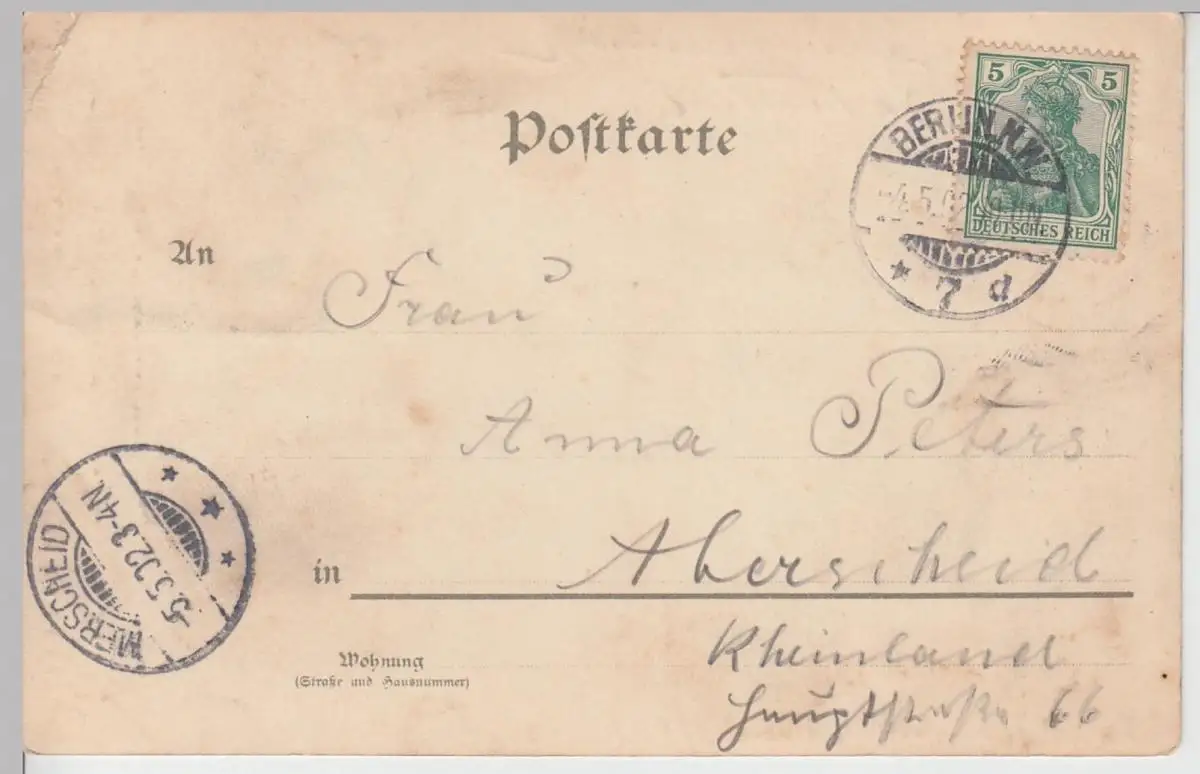 Postkarte
5 5
DEUTSCHES REICH
BERLIN.N.W.
-4.5.02
* 7 d
An Frau
Anna Peters
in Aberscheid
Rheinland
Wohnung
(Straße und Hausnummer)
Hauptstraße 66
MERSCHEID
-5.5.02.3-4N.